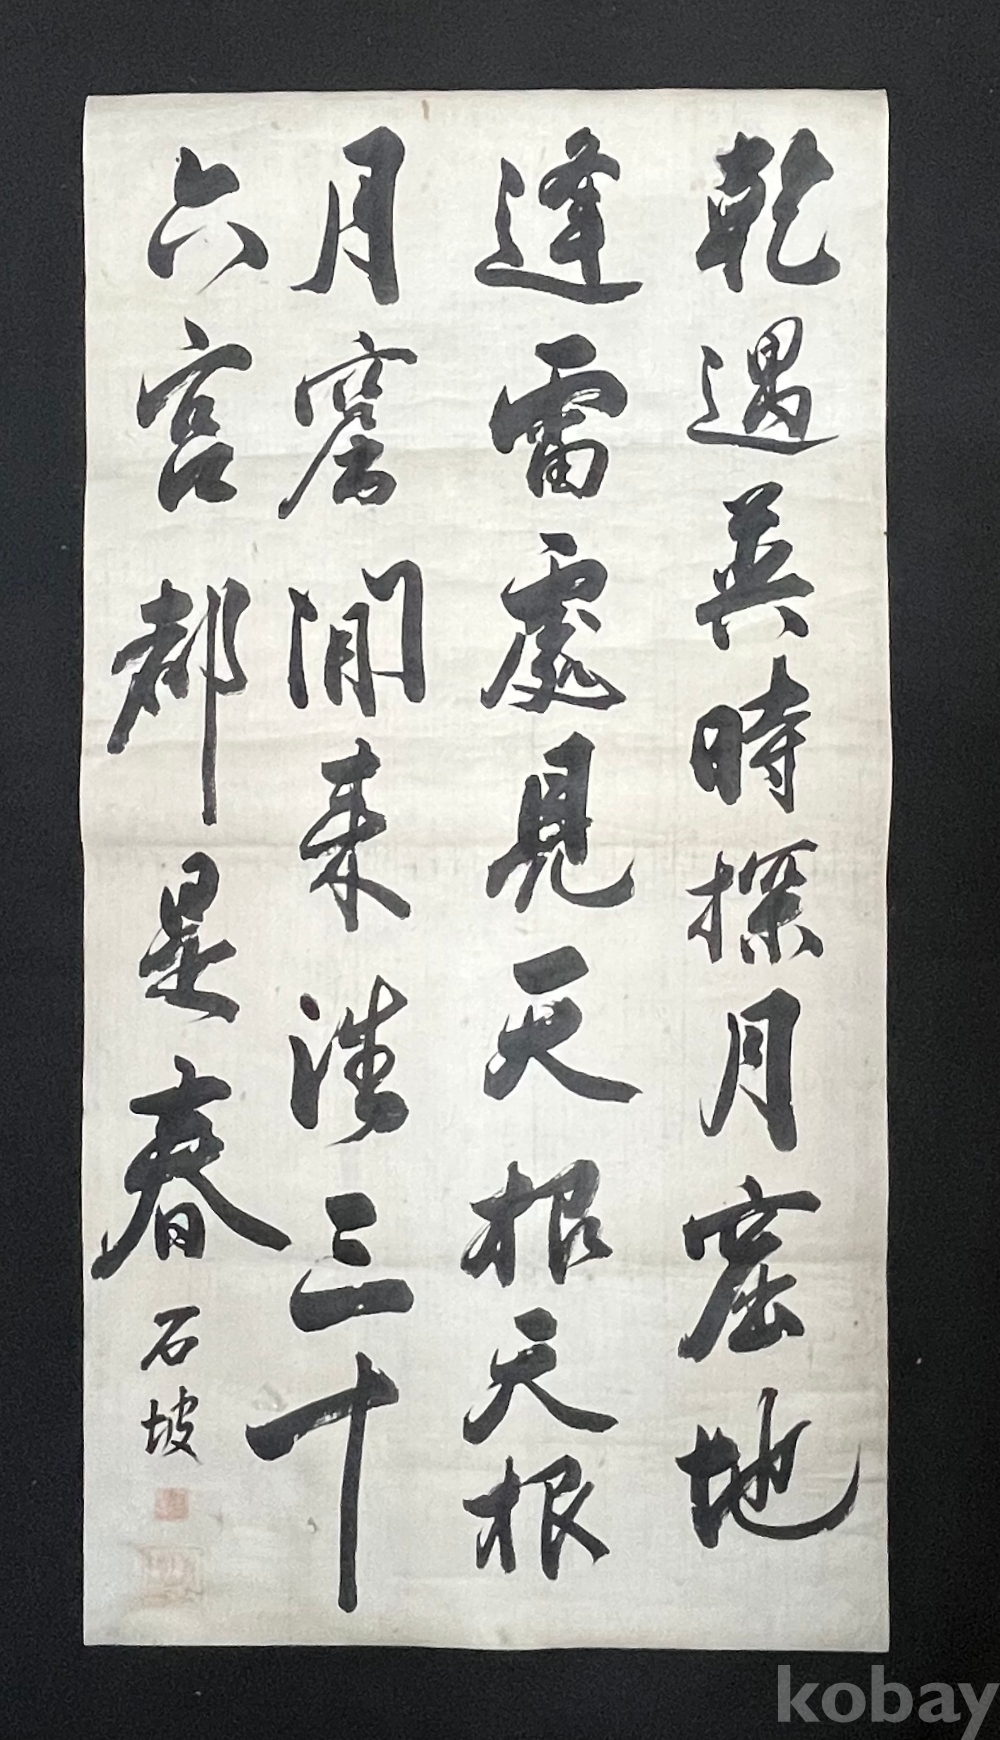 乾遇巽時探月窟地
逢雷處見天根天根
月窟閒来徃三十
六宮都是春
石坡
kobay